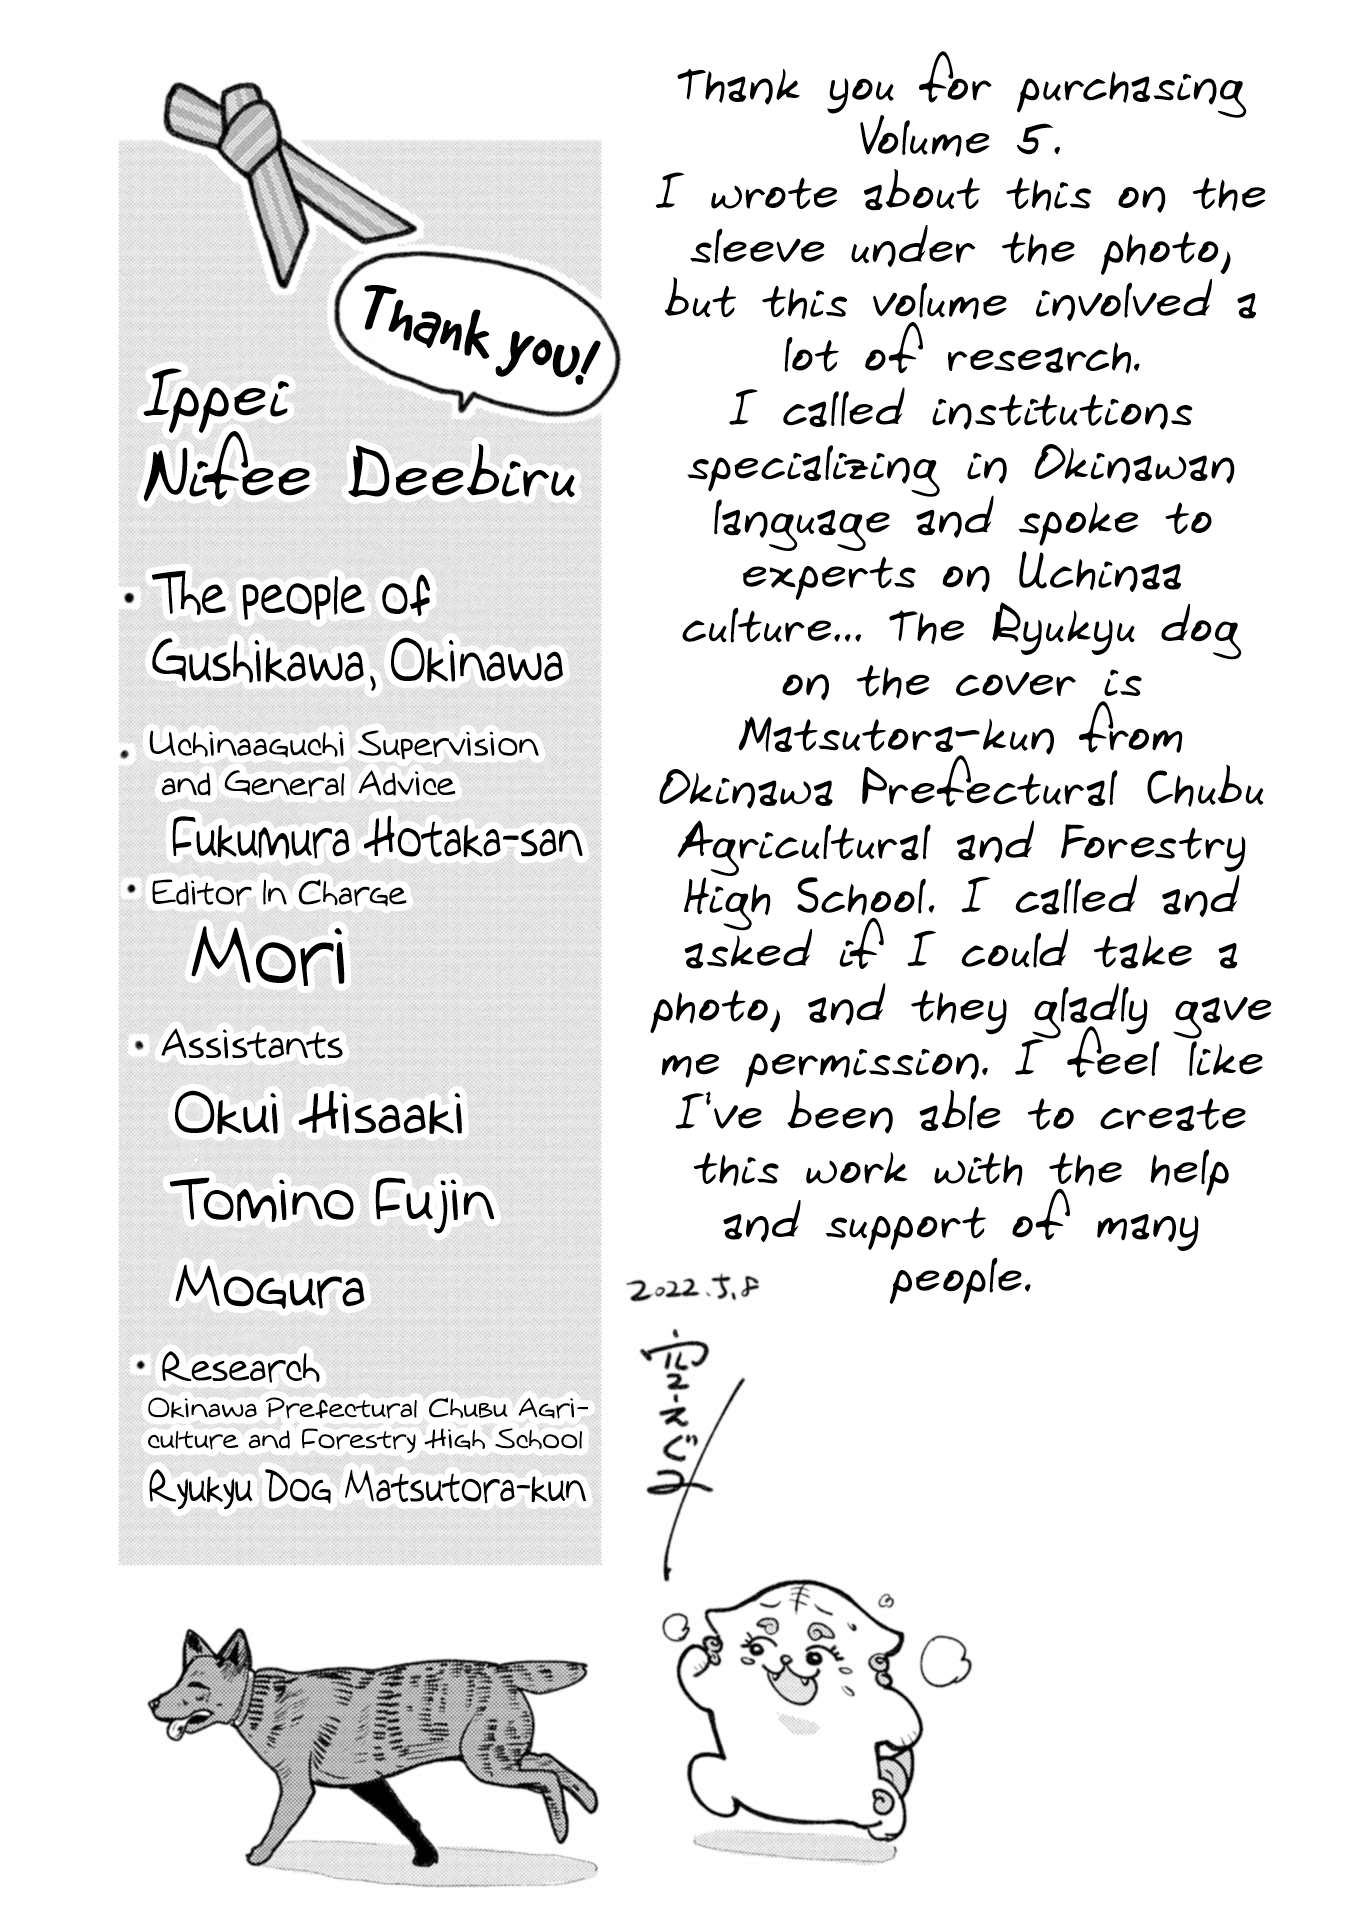 Thank you!
Ippei
Nifee Deebiru
• The people of
Gushikawa, Okinawa
• Uchinaaguchi Supervision
and General Advice
Fukumura Hotaka-san
• Editor In Charge
Mori
• Assistants
Okui Hisaaki
Tomino Fujin
Mogura
• Research
Okinawa Prefectural Chubu Agri-
culture and Forestry High School
Ryukyu Dog Matsutora-kun
Thank you for purchasing
Volume 5.
I wrote about this on the
sleeve under the photo,
but this volume involved a
lot of research.
I called institutions
specializing in Okinawan
language and spoke to
experts on Uchinaa
culture... The Ryukyu dog
on the cover is
Matsutora-kun from
Okinawa Prefectural Chubu
Agricultural and Forestry
High School. I called and
asked if I could take a
photo, and they gladly gave
me permission. I feel like
I've been able to create
this work with the help
and support of many
people.
2022.5.8
空えぐみ